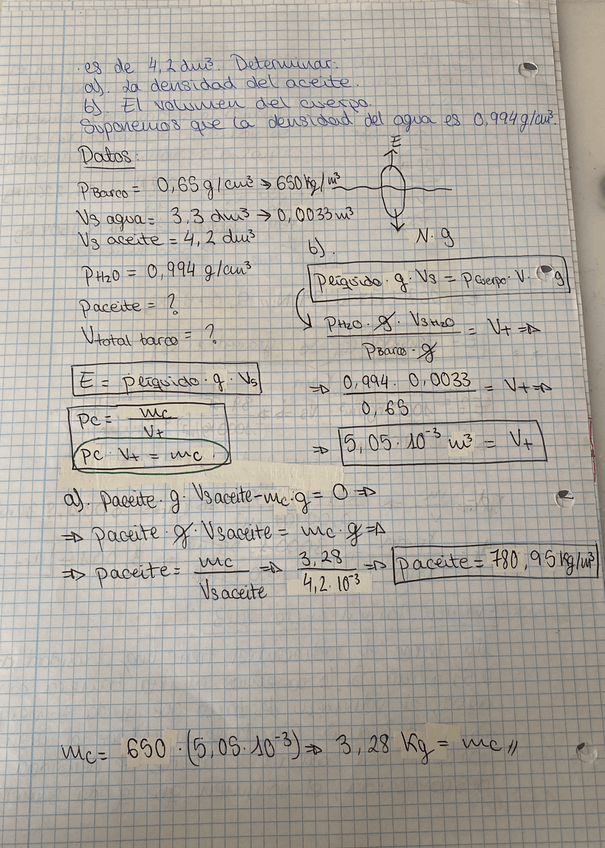 es de 4,2 dm³. Determinar:
a). La densidad del aceite.
b). El volumen del cuerpo.
Suponemos que la densidad del agua es 0,994 g/cm³.
Datos:
ρBarco = 0,65 g/cm³ → 650 kg/m³
Vs agua = 3,3 dm³ → 0,0033 m³
Vs aceite = 4,2 dm³
ρH2O = 0,994 g/cm³
ρaceite = ?
Vtotal barco = ?
E = ρlíquido · g · Vs
ρc = mc / Vt
ρc · Vt = mc .
E
N · g
b).
ρlíquido · g · Vs = ρcuerpo · V · g
ρH2O · g · VsH2O / ρBarco · g = Vt ⇒
⇒ 0,994 · 0,0033 / 0,65 = Vt ⇒
⇒ 5,05 · 10⁻³ m³ = Vt
a). ρaceite · g · Vsaceite - mc · g = 0 ⇒
⇒ ρaceite · g · Vsaceite = mc · g ⇒
⇒ ρaceite = mc / Vsaceite ⇒ 3,28 / 4,2 · 10⁻³ ⇒ ρaceite = 780,95 Kg/m³
mc = 650 · (5,05 · 10⁻³) ⇒ 3,28 Kg = mc //